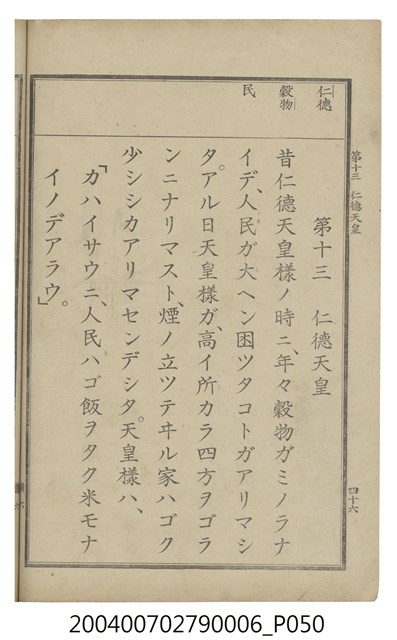 第十三 仁德天皇
四十六
仁德
穀物
民
第十三 仁德天皇
昔仁德天皇樣ノ時ニ、年々穀物ガミノラナ
イデ、人民ガ大ヘン困ツタコトガアリマシ
タ。アル日天皇樣ガ、高イ所カラ四方ヲゴラ
ンニナリマスト、煙ノ立ツテヰル家ハゴク
少シシカアリマセンデシタ。天皇樣ハ、
「カハイサウニ、人民ハゴ飯ヲタク米モナ
イノデアラウ。」
200400702790006_P050